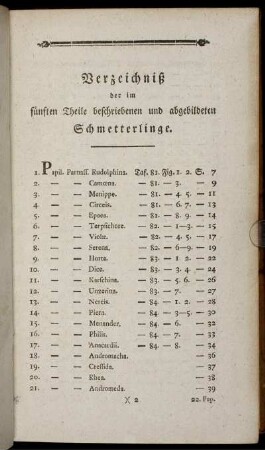 Verzeichniß
der im
fünften Theile beschriebenen und abgebildeten
Schmetterlinge.
1. Papil. Parnass. Rudolphina. Taf. 81. Fig. 1. 2. S. 7
2. — — Camœna. — 81. — 3. — 9
3. — — Menippe. — 81. — 4. 5. — 11
4. — — Circeis. — 81. — 6. 7. — 13
5. — — Epaea. — 81. — 8. 9. — 14
6. — — Terpsichore. — 82. — 1-3. — 15
7. — — Viola. — 82. — 4. 5. — 17
8. — — Serena. — 82. — 6-9. — 19
9. — — Horta. — 83. — 1. 2. — 22
10. — — Dice. — 83. — 3. 4. — 24
11. — — Karschina. — 83. — 5. 6. — 26
12. — — Unzerina. — 83. — 7. — 27
13. — — Nereis. — 84. — 1. 2. — 28
14. — — Piera. — 84. — 3-5. — 30
15. — — Menander. — 84. — 6. — 32
16. — — Philis. — 84. — 7. — 33
17. — — Anacardii. — 84. — 8. — 34
18. — — Andromacha. — 36
19. — — Cressida. — 37
20. — — Rhea. — 38
21. — — Andromeda. — 39
X 2 22. Pap.